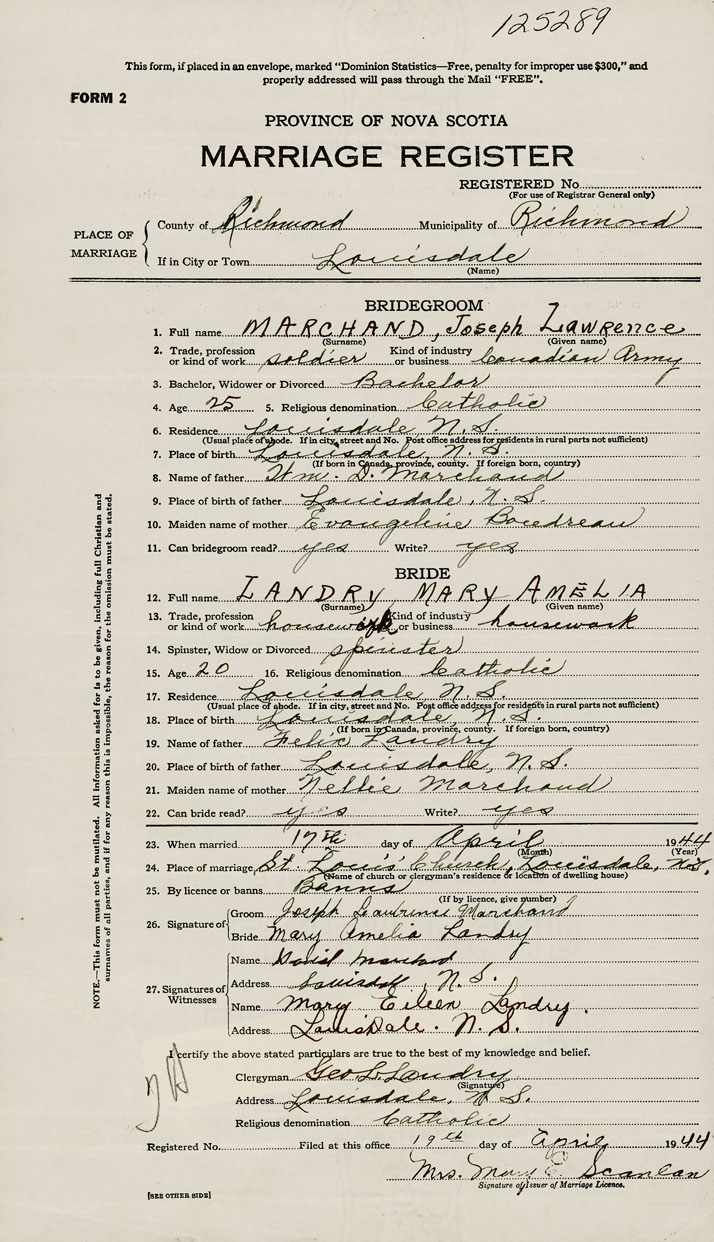 125289
This form, if placed in an envelope, marked "Dominion Statistics—Free, penalty for improper use $300," and
properly addressed will pass through the Mail "FREE".
FORM 2
PROVINCE OF NOVA SCOTIA
MARRIAGE REGISTER
REGISTERED No.
(For use of Registrar General only)
PLACE OF MARRIAGE
County of Richmond Municipality of Richmond
If in City or Town Louisdale
(Name)
BRIDEGROOM
1. Full name MARCHAND, Joseph Lawrence
(Surname) (Given name)
2. Trade, profession or kind of work soldier Kind of industry or business Canadian Army
3. Bachelor, Widower or Divorced Bachelor
4. Age 25 5. Religious denomination Catholic
6. Residence Louisdale, N.S.
(Usual place of abode. If in city, street and No. Post office address for residents in rural parts not sufficient)
7. Place of birth Louisdale, N.S.
(If born in Canada, province, county. If foreign born, country)
8. Name of father Wm. D. Marchand
9. Place of birth of father Louisdale, N.S.
10. Maiden name of mother Evangeline Boudreau
11. Can bridegroom read? yes Write? yes
BRIDE
12. Full name LANDRY MARY AMELIA
(Surname) (Given name)
13. Trade, profession or kind of work housework Kind of industry or business housework
14. Spinster, Widow or Divorced spinster
15. Age 20 16. Religious denomination Catholic
17. Residence Louisdale, N.S.
(Usual place of abode. If in city, street and No. Post office address for residents in rural parts not sufficient)
18. Place of birth Louisdale, N.S.
(If born in Canada, province, county. If foreign born, country)
19. Name of father Felix Landry
20. Place of birth of father Louisdale, N.S.
21. Maiden name of mother Nellie Marchand
22. Can bride read? yes Write? yes
23. When married 17th day of April 1944
(Month) (Year)
24. Place of marriage St. Louis' Church, Louisdale, N.S.
(Name of church or clergyman's residence or location of dwelling house)
25. By licence or banns Banns
(If by licence, give number)
26. Signature of
Groom Joseph Lawrence Marchand
Bride Mary Amelia Landry
27. Signatures of Witnesses
Name David Marchand
Address Louisdale, N.S.
Name Mary Eileen Landry.
Address Louisdale. N.S.
I certify the above stated particulars are true to the best of my knowledge and belief.
Clergyman Geo L. Landry
(Signature)
Address Louisdale, N.S.
Religious denomination Catholic
Registered No. Filed at this office 19th day of April 1944
Mrs. Mary E. Scanlan
Signature of Issuer of Marriage Licence.
[SEE OTHER SIDE]
NOTE.—This form must not be mutilated. All information asked for is to be given, including full Christian and
surnames of all parties, and if for any reason this is impossible, the reason for the omission must be stated.